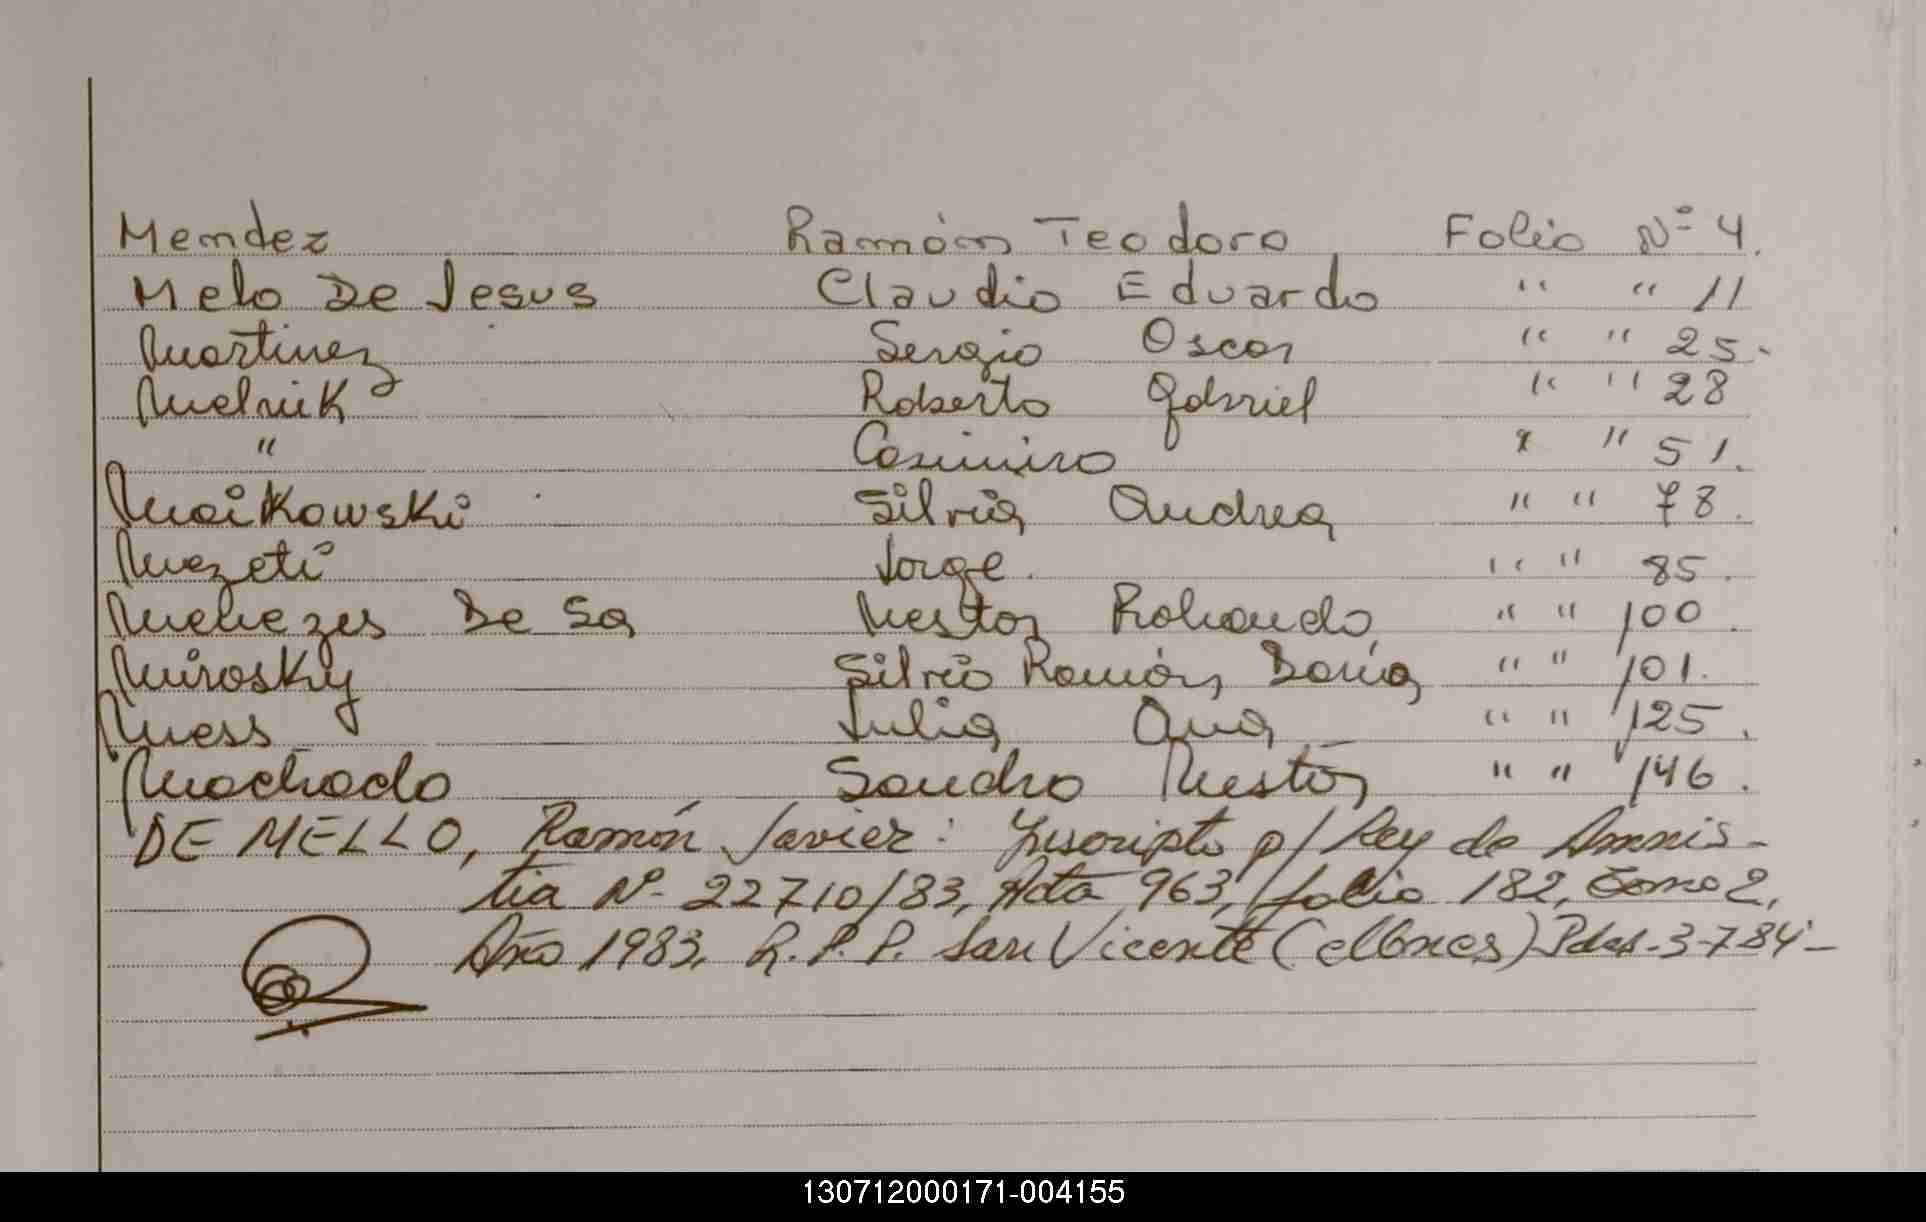 Mendez Ramón Teodoro Folio Nº 4.
Melo De Jesus Claudio Eduardo " " 11
Martinez Sergio Oscar " " 25.-
Melnik Roberto Gabriel " " 28
" Casimiro " " 51.
Maikowski Silvia Andrea " " 78.
Mezeti Jorge. " " 85.
Menezes De Sa Nestor Rolando " " 100.
Mirosky Silvio Ramón " " 101.
Mess Julia Ana " " 125.
Machado Sandro Nestor " " 146.
DE MELLO, Ramón Javier: Inscripto p/ Ley de Amnis-
tia Nº 22710/83, Acta 963, folio 182, Tomo 2,
Año 1983, R.P.P. San Vicente (Mnes) Pdas-3-7-84-
130712000171-004155